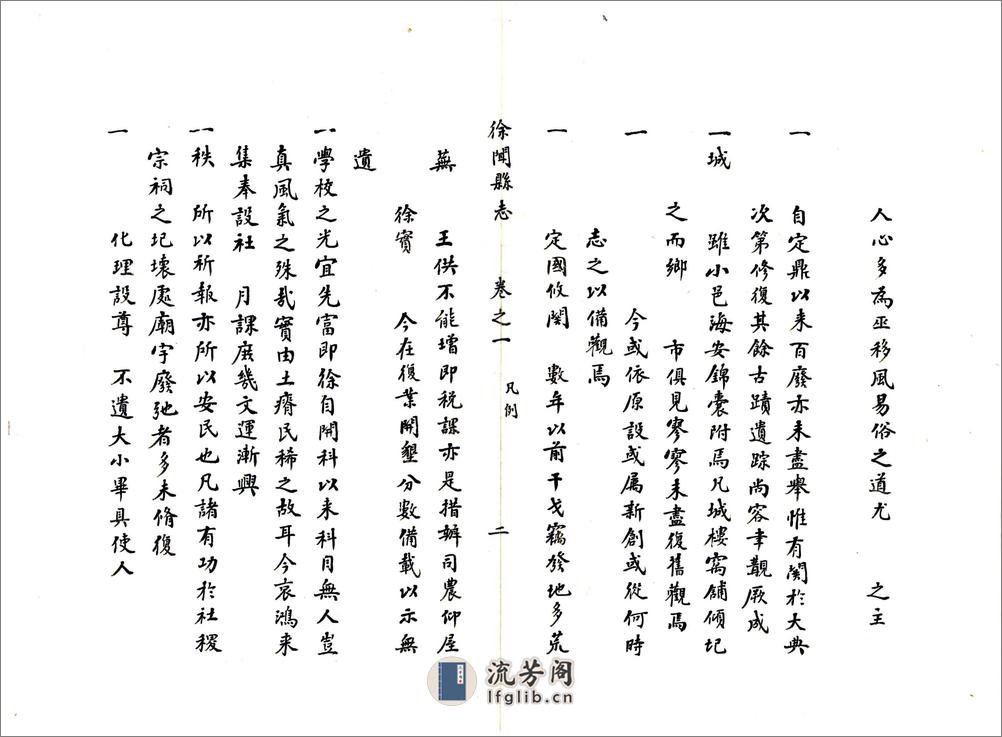 人心多為巫移風易俗之道尤 之主
一 自定鼎以來百廢亦未盡舉惟有關於大典
次第修復其餘古蹟遺踪尚容聿觀厥成
一城 雖小邑海安錦囊附焉凡城樓窩鋪傾圮
之而鄉 市俱見寥寥未盡復舊觀焉
一 今或依原設或属新創或從何時
志之以備觀焉
一 定國攸関 數年以前干戈竊發地多荒
徐聞縣志 卷之一 凡例 二
蕪 王供不能璔即税課亦是措辦司農仰屋
徐實 今在復業開墾分數備載以示無
遺
一學校之光宜先富即徐自開科以来科目無人豈
真風氣之殊哉實由土瘠民稀之故耳今哀鴻来
集奉設社 月課庶幾文運漸興
一秩 所以祈報亦所以安民也凡諸有功於社稷
宗祠之圮壞處廟宇廢弛者多未脩復
一 化理設尊 不遺大小畢具使人
流芳阁
lfglib.cn